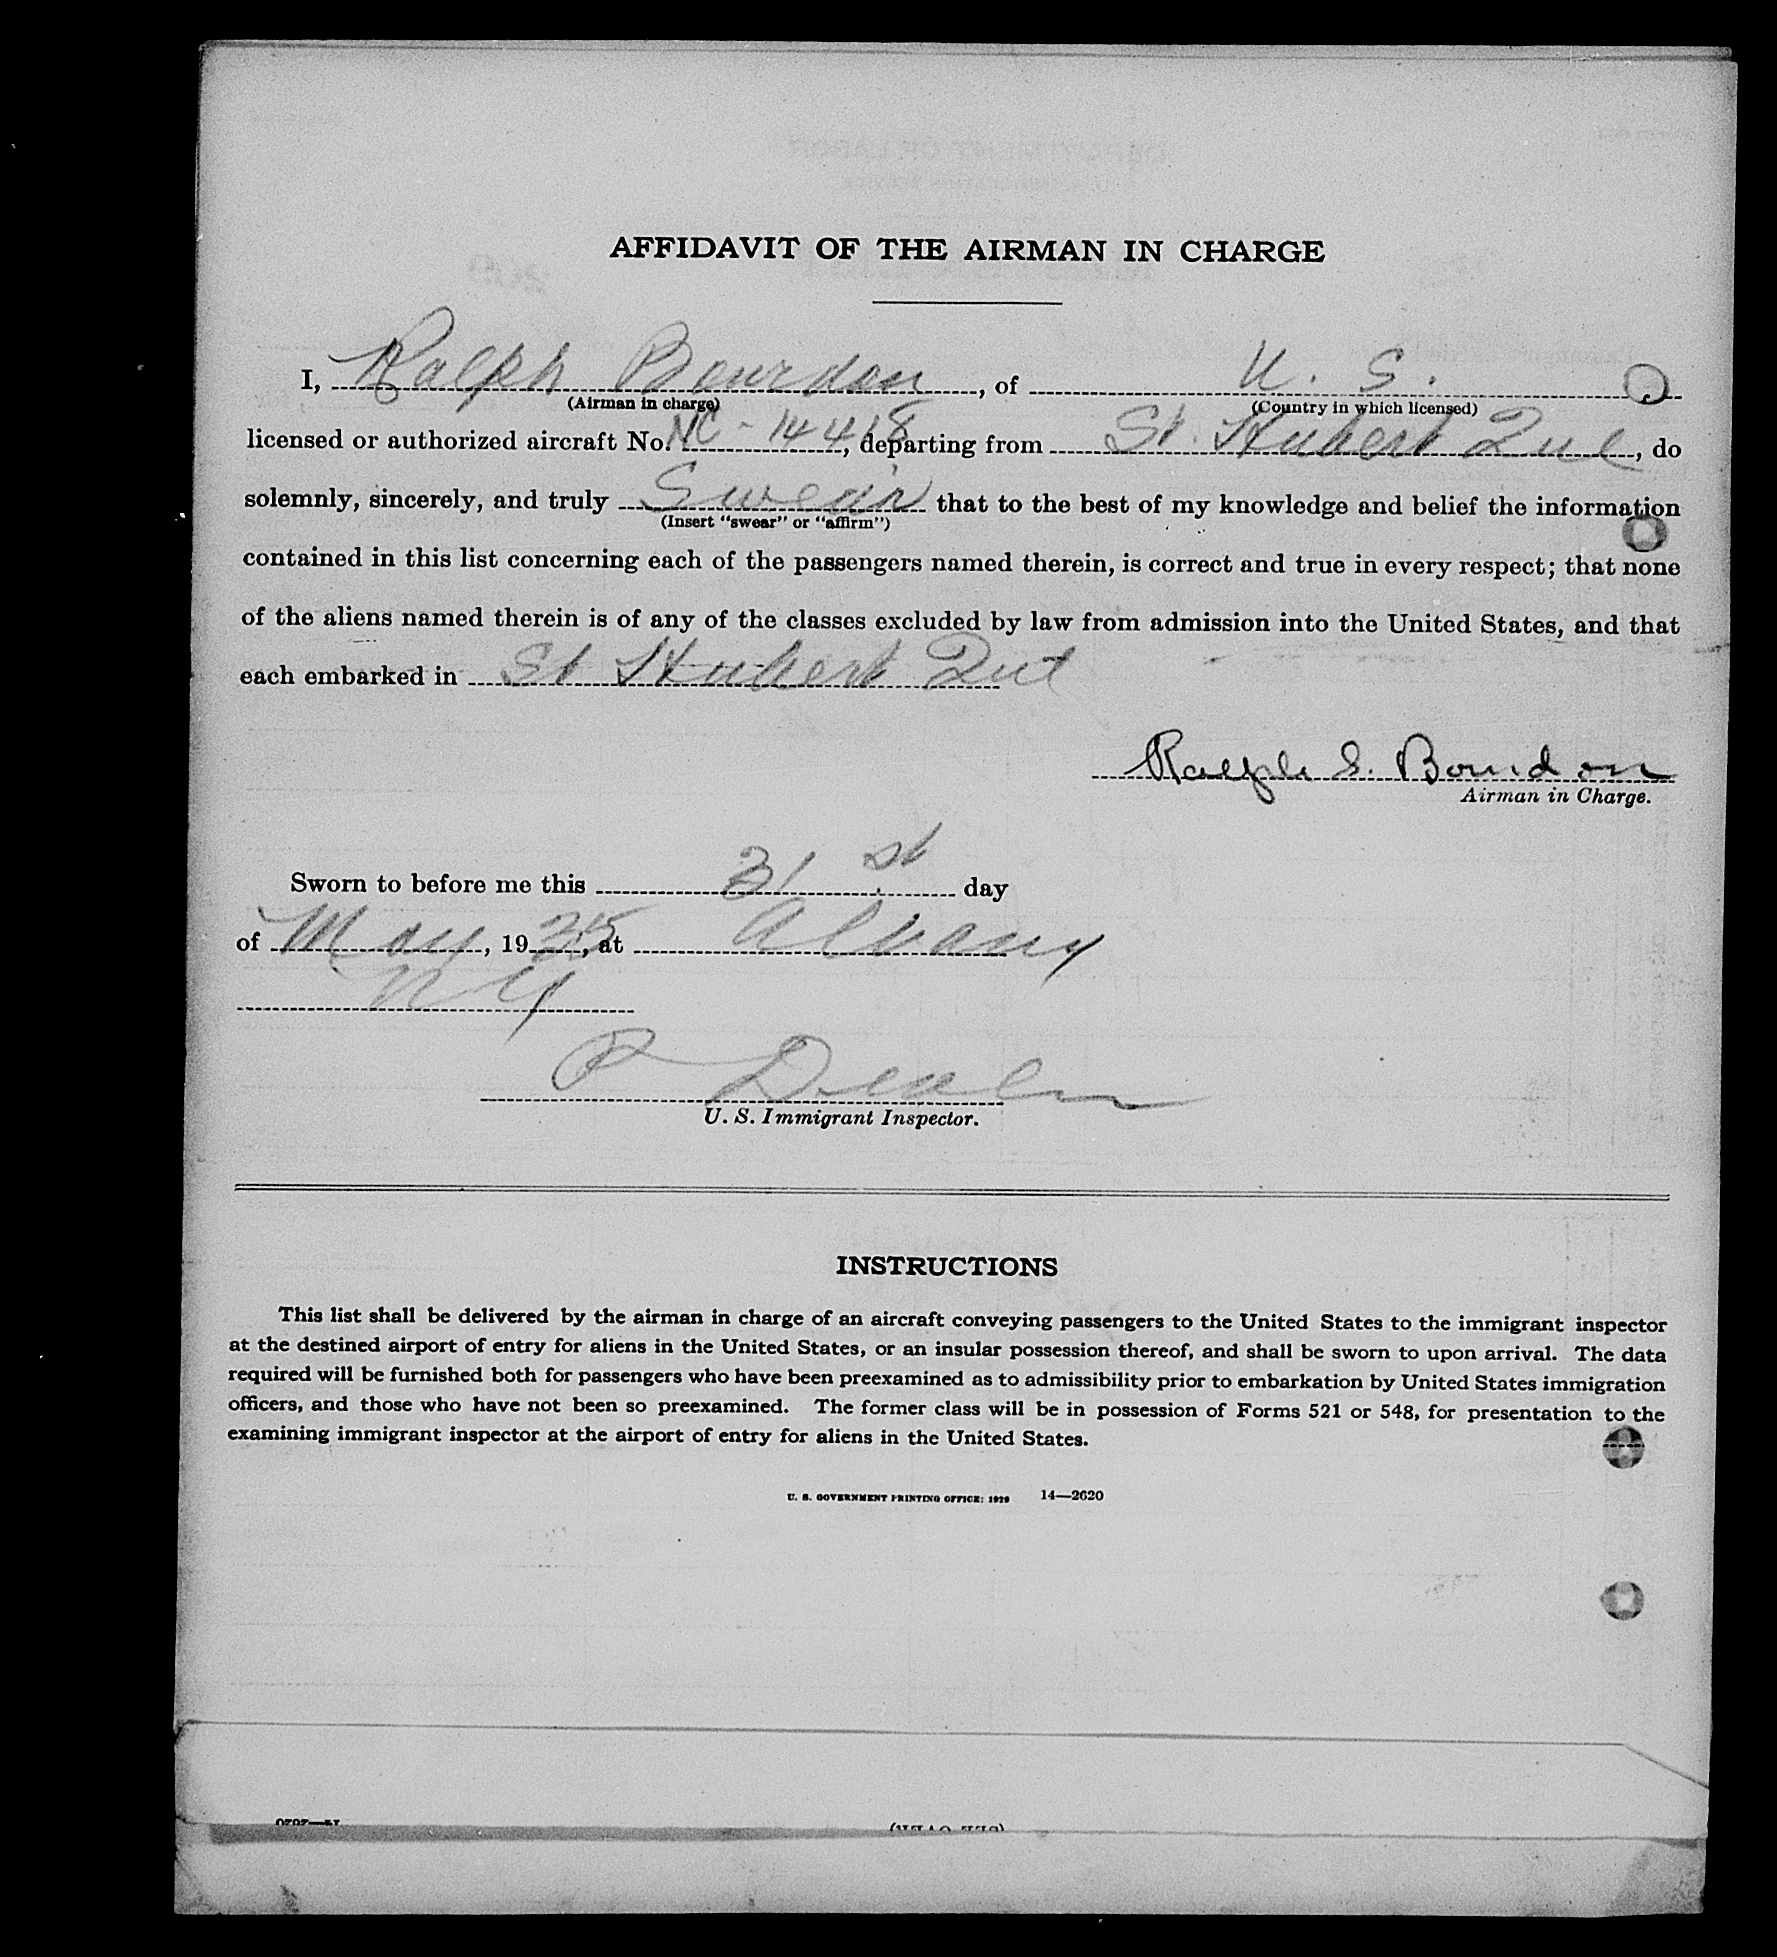 AFFIDAVIT OF THE AIRMAN IN CHARGE
I, Ralph Bourdon, of U. S.
(Airman in charge) (Country in which licensed)
licensed or authorized aircraft No. NC-14418, departing from St. Hubert Que, do
solemnly, sincerely, and truly Swear that to the best of my knowledge and belief the information
(Insert "swear" or "affirm")
contained in this list concerning each of the passengers named therein, is correct and true in every respect; that none
of the aliens named therein is of any of the classes excluded by law from admission into the United States, and that
each embarked in St Hubert Que
Ralph S. Bourdon
Airman in Charge.
Sworn to before me this 31st day
of May, 1935, at Albany
N Y
U. S. Immigrant Inspector.
INSTRUCTIONS
This list shall be delivered by the airman in charge of an aircraft conveying passengers to the United States to the immigrant inspector
at the destined airport of entry for aliens in the United States, or an insular possession thereof, and shall be sworn to upon arrival. The data
required will be furnished both for passengers who have been preexamined as to admissibility prior to embarkation by United States immigration
officers, and those who have not been so preexamined. The former class will be in possession of Forms 521 or 548, for presentation to the
examining immigrant inspector at the airport of entry for aliens in the United States.
U. S. GOVERNMENT PRINTING OFFICE: 1929 14—2620